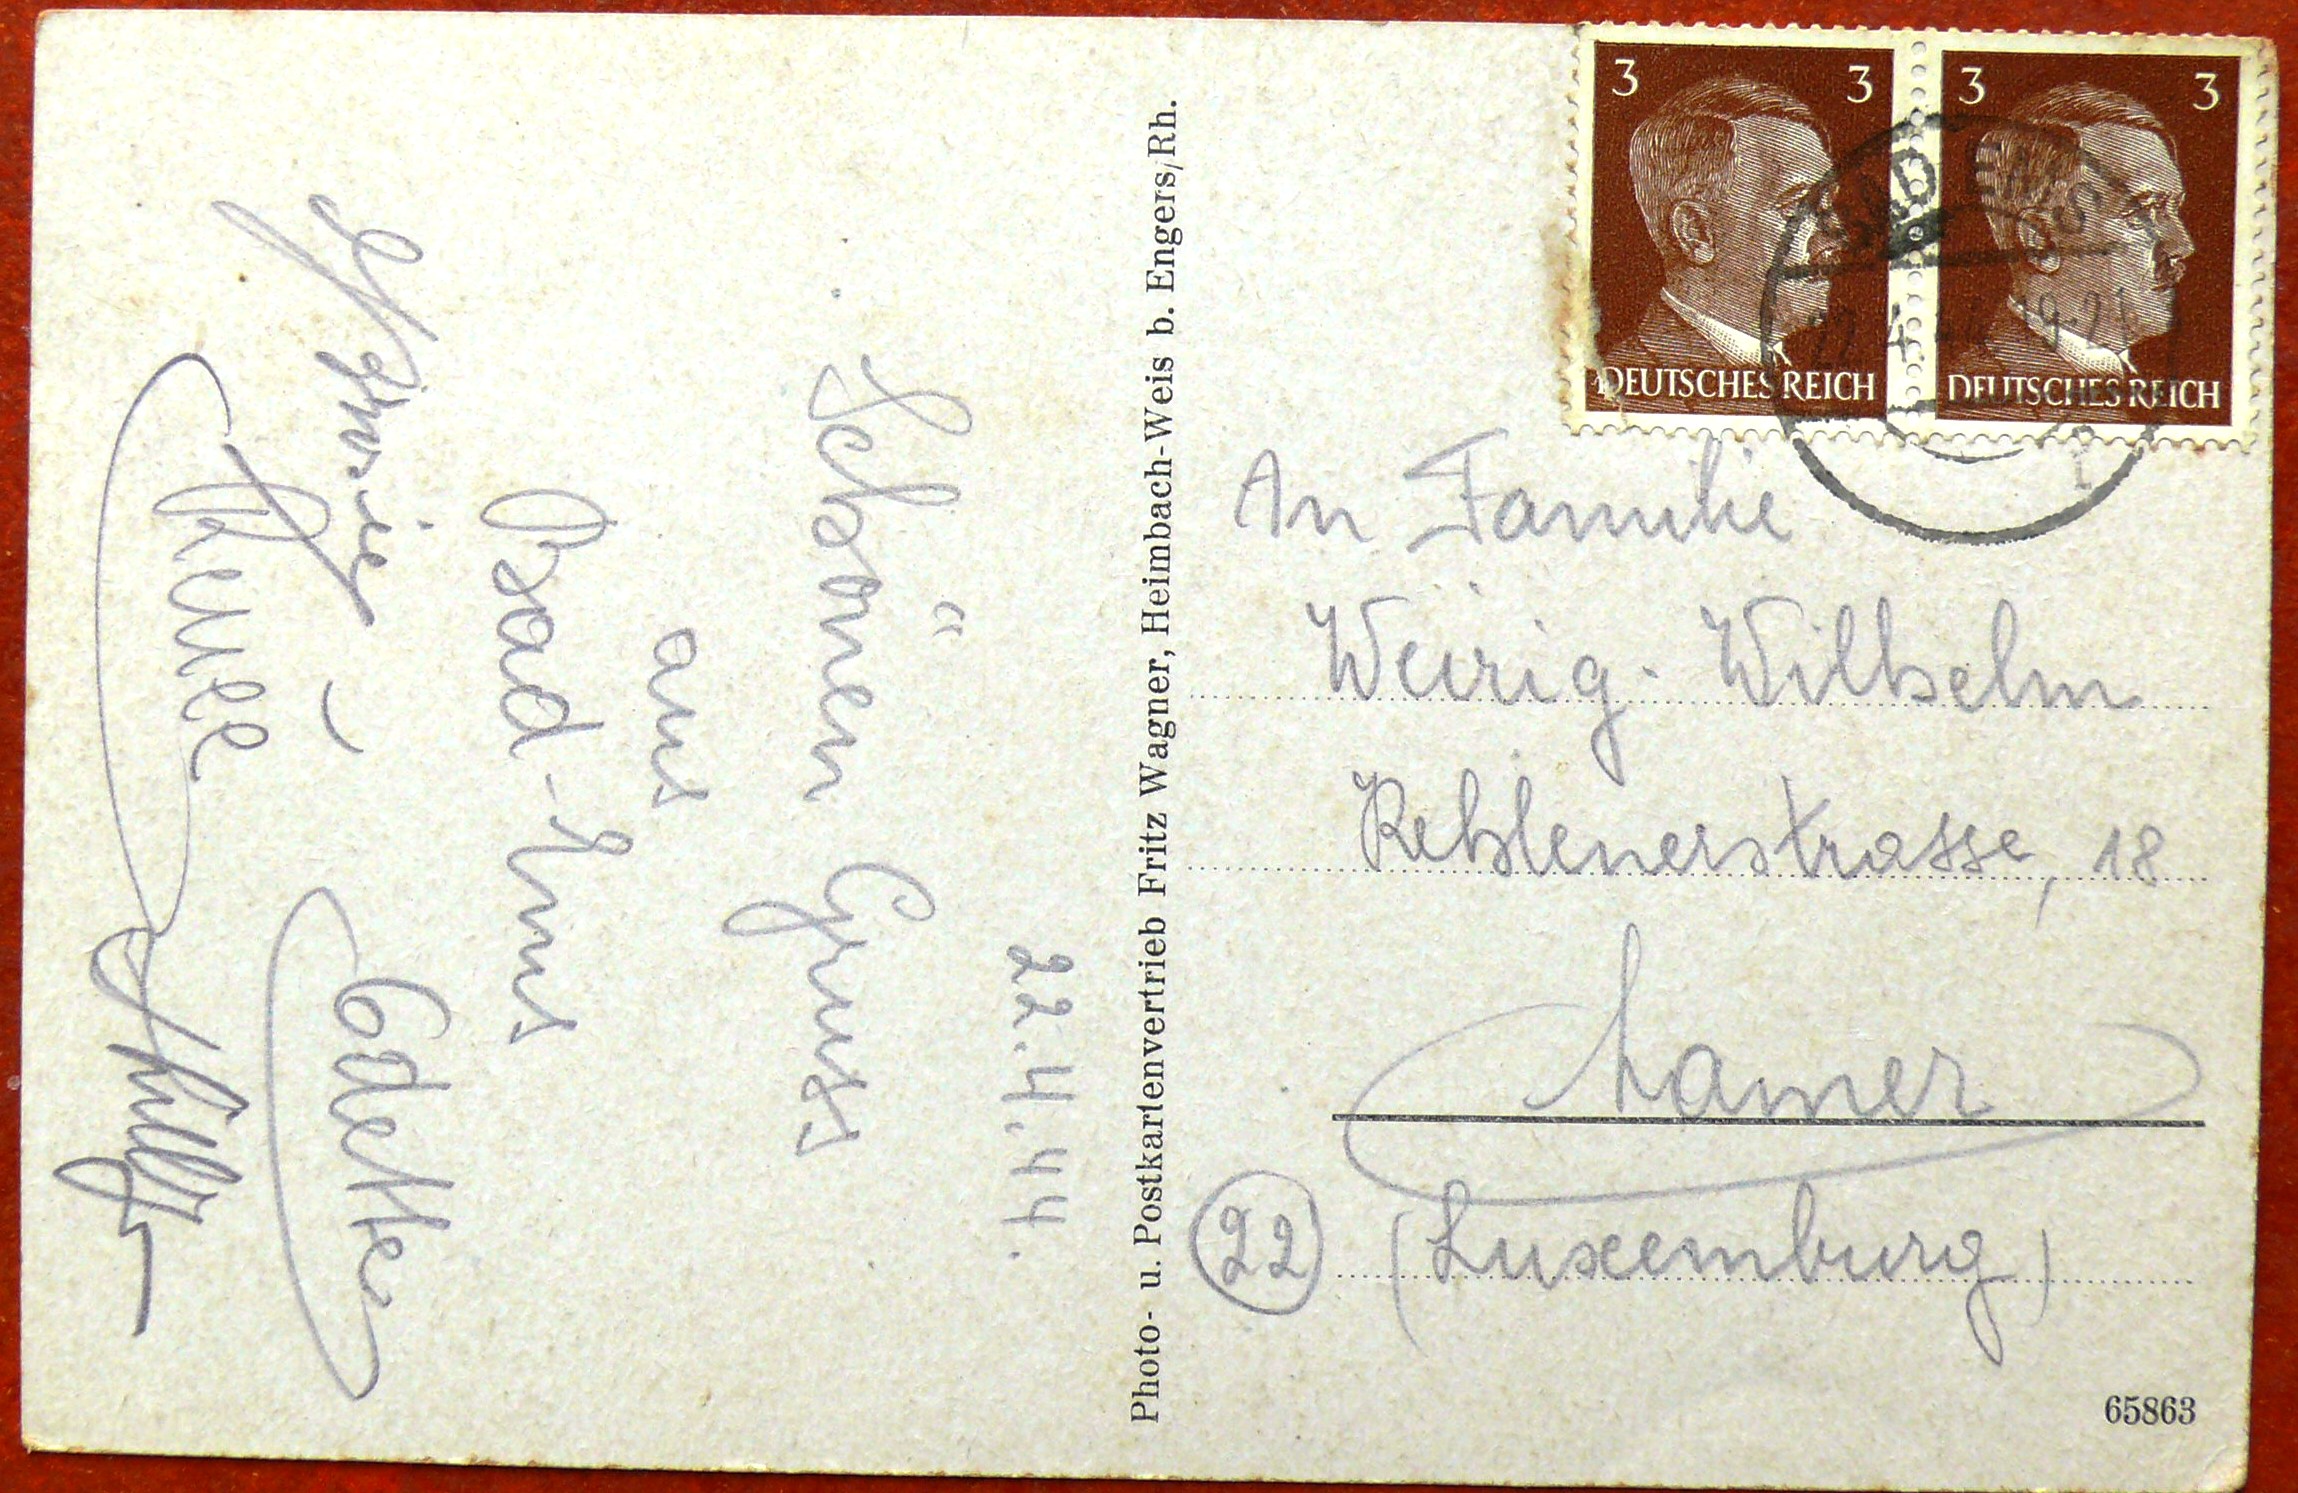 22.4.44.
Schönen Gruss
aus
Bad-Ems
Odette
3 3
DEUTSCHES REICH
3 3
DEUTSCHES REICH
BAD EMS
22.4.44 19-21
Photo- u. Postkartenvertrieb Fritz Wagner, Heimbach-Weis b. Engers/Rh.
An Familie
Weirig-Wilhelm
Kehlenerstrasse, 18
Mamer
22 (Luxemburg)
65863